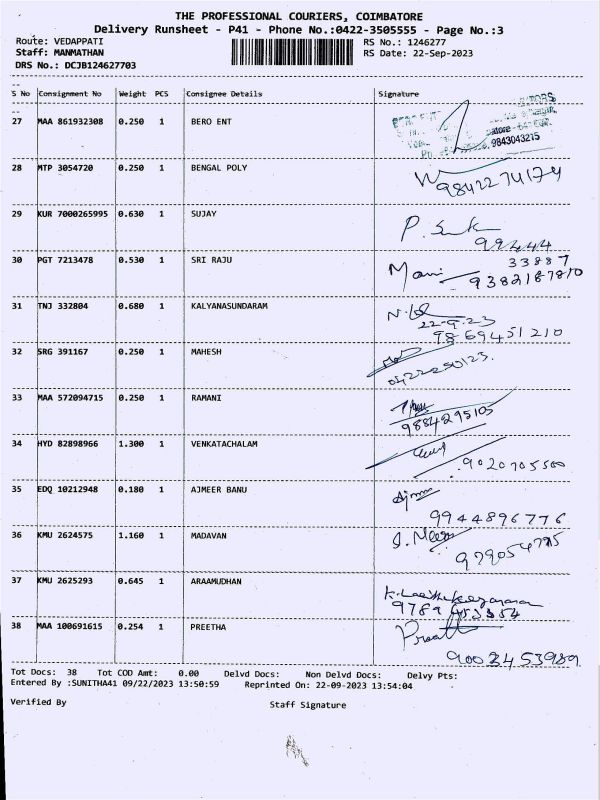 THE PROFESSIONAL COURIERS, COIMBATORE
Delivery Runsheet - P41 - Phone No.:0422-3505555 - Page No.:3
Route: VEDAPPATI RS No.: 1246277
Staff: MANMATHAN RS Date: 22-Sep-2023
DRS No.: DCJB124627703
S No Consignment No Weight PCS Consignee Details Signature
27 MAA 861932308 0.250 1 BERO ENT
9843043215
28 MTP 3054720 0.250 1 BENGAL POLY
9842274174
29 KUR 7000265995 0.630 1 SUJAY
99444
33887
30 PGT 7213478 0.530 1 SRI RAJU Mani
9382187810
31 TNJ 332804 0.680 1 KALYANASUNDARAM
22-9-23
9869451210
32 SRG 391167 0.250 1 MAHESH
33 MAA 572094715 0.250 1 RAMANI
9884295105
34 HYD 82898966 1.300 1 VENKATACHALAM
9020705500
35 EDQ 10212948 0.180 1 AJMEER BANU
9944896776
36 KMU 2624575 1.160 1 MADAVAN
37 KMU 2625293 0.645 1 ARAAMUDHAN
38 MAA 100691615 0.254 1 PREETHA
9002453989
Tot Docs: 38 Tot COD Amt: 0.00 Delvd Docs: Non Delvd Docs: Delvy Pts:
Entered By :SUNITHA41 09/22/2023 13:50:59 Reprinted On: 22-09-2023 13:54:04
Verified By Staff Signature